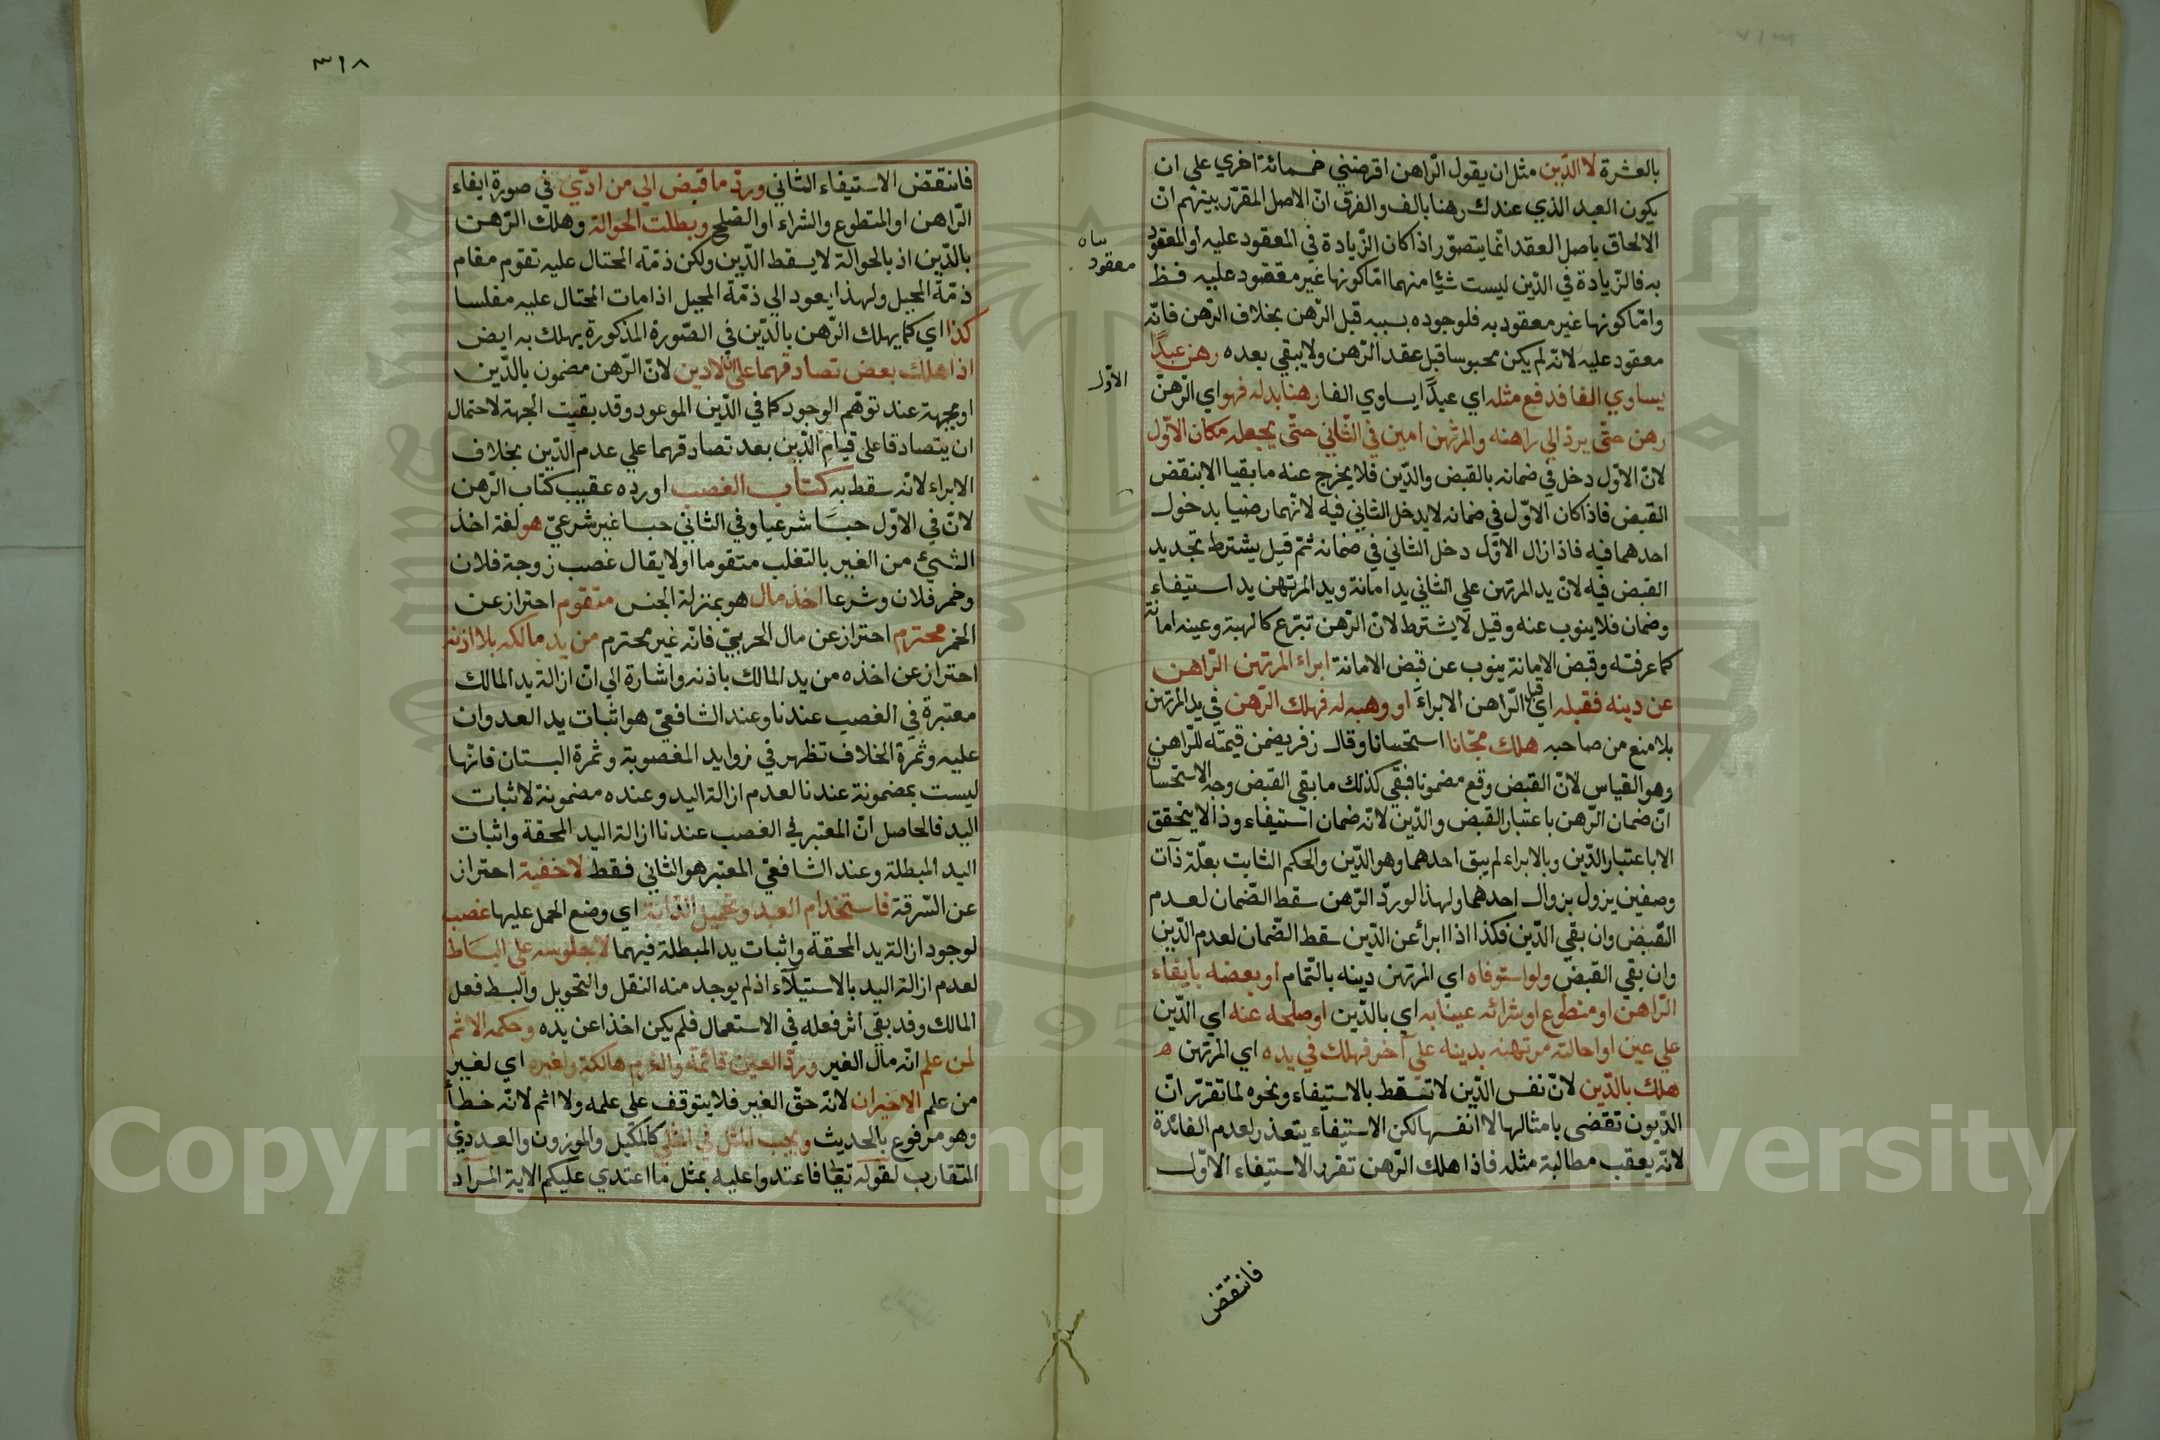 بالعشرة لا الدّين مثل ان يقول الرّاهن اقرضني خمسمائة اخري علي ان
يكون العبد الذي عندك رهنا بالف والفرق انّ الاصل المقرّر بينهم انّ
الالحاق باصل العقد انّما يتصوّر اذا كان الزّيادة في المعقود عليه او المعقود
به فالزّيادة في الدّين ليست شيًا منهما امّا كونها غير معقود عليه فظ
وامّا كونها غير معقود به فلوجوده بسببه قبل الرّهن بخلاف الرّهن فانّه
معقود عليه لانّه لم يكن محبوسا قبل عقد الرّهن ولا يبقي بعده رهن عبدًا
يساوي الفا فدفع مثله اي عبدًا يساوي الفا رهنا بدله فهو اي الرّهن
رهن حتّي يردّ الي راهنه والمرتهن امين في الثّاني حتّي يجعله مكان الاوّل
لانّ الاوّل دخل في ضمانه بالقبض والدّين فلا يخرج عنه ما بقيا الا بنقض
القبض فاذا كان الاوّل في ضمانه لا يدخل الثاني فيه لانّهما رضيا بدخول
احدهما فيه فاذا زال الاوّل دخل الثاني في ضمانه ثمّ قيل يشترط تجديد
القبض فيه لانّ يد المرتهن علي الثاني يد امانة ويد المرتهن يد استيفاء
وضمان فلا ينوب عنه وقيل لا يشترط لانّ الرّهن تبرّع كالهبة وعينه امانة
كما عرفته وقبض الامانة ينوب عن قبض الامانة ابراء المرتهن الرّاهن
عن دينه فقبله اي قبل الرّاهن الابراء او وهبه له فهلك الرّهن في يد المرتهن
بلا منع من صاحبه هلك مجّانا استحسانا وقال زفر يضمن قيمته للرّاهن
وهو القياس لانّ القبض وقع مضمونا فبقي كذلك ما بقي القبض وجه الاستحسان
انّ ضمان الرّهن باعتبار القبض والدّين لانّه ضمان استيفاء وذا لا يتحقق
الا باعتبار الدّين وبالابراء لم يبق احدهما وهو الدّين والحكم الثابت بعلّة ذات
وصفين يزول بزوال احدهما ولهذا لو ردّ الرّهن سقط الضّمان لعدم
القبض وان بقي الدّين فكذا اذا ابراء عن الدّين سقط الضّمان لعدم الدّين
وان بقي القبض ولو استوفاه اي المرتهن دينه بالتّمام او بعضه بايفاء
الرّاهن او متطوع او شرائه عينا به اي بالدّين او صلحه عنه اي الدّين
علي عين او احالته مرتهنه بدينه علي آخر فهلك في يده اي المرتهن ه
هلك بالدّين لانّ نفس الدّين لا تسقط بالاستيفاء ونحوه لما تقرّر انّ
الدّيون تقضي بامثالها لا انفسها لكن الاستيفاء يتعذر لعدم الفائدة
لانّه يعقب مطالبة مثله فاذا هلك الرّهن تقرر الاستيفاء الاوّل
فانتقض
معقود
الاوّل
٣١٨
فانتقض الاستيفاء الثاني وردّ ما قبض الي من ادّي في صورة ايفاء
الرّاهن او المتطوع والشراء او الصّلح وبطلت الحوالة وهلك الرّهن
بالدّين اذ بالحوالة لا يسقط الدّين ولكن ذمّة المحتال عليه تقوم مقام
ذمّة المحيل ولهذا يعود الي ذمّة المحيل اذا مات المحتال عليه مفلسا
كذا اي كما يهلك الرّهن بالدّين في الصّورة المذكورة يهلك به ايض
اذا هلك بعض تصادقهما علي ان لا دين لانّ الرّهن مضمون بالدّين
او بجهته عند توهّم الوجود كما في الدّين الموعود وقد بقيت الجهة لاحتمال
ان يتصادقا علي قيام الدّين بعد تصادقهما علي عدم الدّين بخلاف
الابراء لانّه سقط به كتاب الغصب اورده عقيب كتاب الرّهن
لانّ في الاوّل حبسا شرعيا وفي الثاني حبسا غير شرعيّ هو لغة اخذ
الشيئ من الغير بالتغلب متقوما اولا يقال غصب زوجة فلان
وخمر فلان وشرعا اخذ مال هو بمنزلة الجنس متقوم احتراز عن
الخمر محترم احتراز عن مال الحربيّ فانّه غير محترم من يد مالكه بلا اذنه
احتراز عن اخذه من يد المالك باذنه واشارة الي انّ ازالة يد المالك
معتبرة في الغصب عندنا وعند الشافعيّ هو اثبات يد العدوان
عليه وثمرة الخلاف تظهر في زوايد المغصوبة وثمرة البستان فانّها
ليست بمضمونة عندنا لعدم ازالة اليد وعنده مضمونة لاثبات
اليد فالحاصل انّ المعتبر في الغصب عندنا ازالة اليد المحقة واثبات
اليد المبطلة وعند الشافعيّ المعتبر هو الثاني فقط لا خفية احتراز
عن السّرقة فاستخدام العبد وتحميل الدّابة اي وضع الحمل عليها غصب
لوجود ازالة يد المحقة واثبات يد المبطلة فيهما لا جلوسه علي البساط
لعدم ازالة اليد بالاستيلآء اذ لم يوجد منه النقل والتحويل والبسط فعل
المالك وقد بقي اثر فعله في الاستعمال فلم يكن اخذا عن يده وحكمه الاثم
لمن علم انّه مال الغير وردّ العين قائمة والغرم هالكة ولغيره اي لغير
من علم الاخيران لانّه حقّ الغير فلا يتوقف علي علمه ولا اثم لانّه خطأ
وهو مرفوع بالحديث ويجب المثل في المثلي كالمكيل والموزون والعددي
المتقارب لقوله تعالى فاعتدوا عليه بمثل ما اعتدي عليكم الاية المراد
Copyright © King Saud University